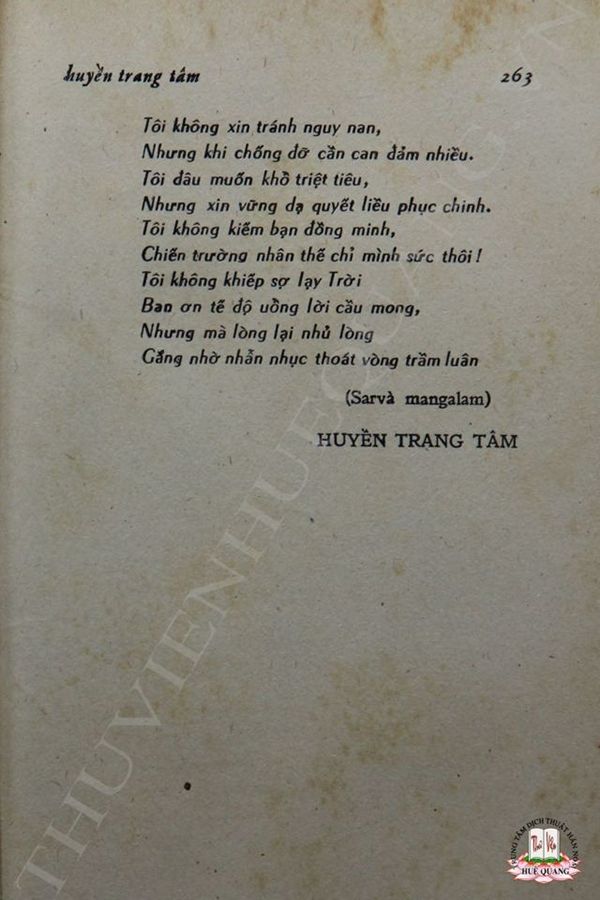 huyền trang tâm 263
Tôi không xin tránh nguy nan,
Nhưng khi chống đỡ cần can đảm nhiều.
Tôi đâu muốn khổ triệt tiêu,
Nhưng xin vững dạ quyết liều phục chinh.
Tôi không kiếm bạn đồng minh,
Chiến trường nhân thế chỉ mình sức thôi !
Tôi không khiếp sợ lạy Trời
Ban ơn tế độ uổng lời cầu mong,
Nhưng mà lòng lại nhủ lòng
Gắng nhờ nhẫn nhục thoát vòng trầm luân
(Sarvà mangalam)
HUYỀN TRANG TÂM
THUVIENHUEQUANG.VN
TRUNG TÂM DỊCH THUẬT HÁN NÔM
Thư Viện
HUỆ QUANG